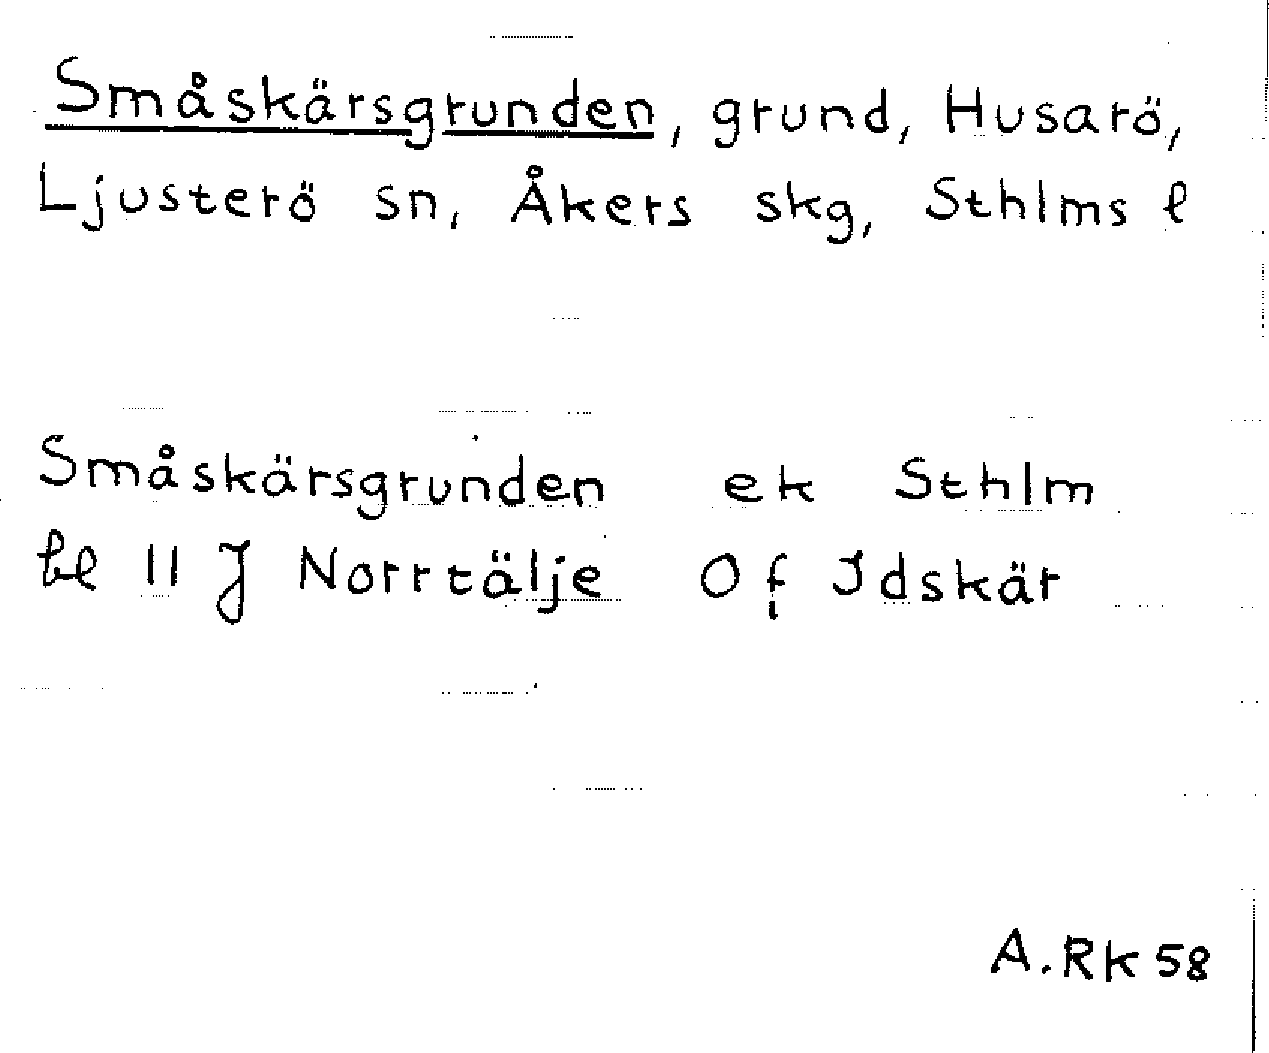 Småskärsgrunden, grund, Husarö,
Ljusterö sn, Åkers skg, Sthlms l
Småskärsgrunden ek Sthlm
bl 11 J Norrtälje Of Idskär
A.Rk 58